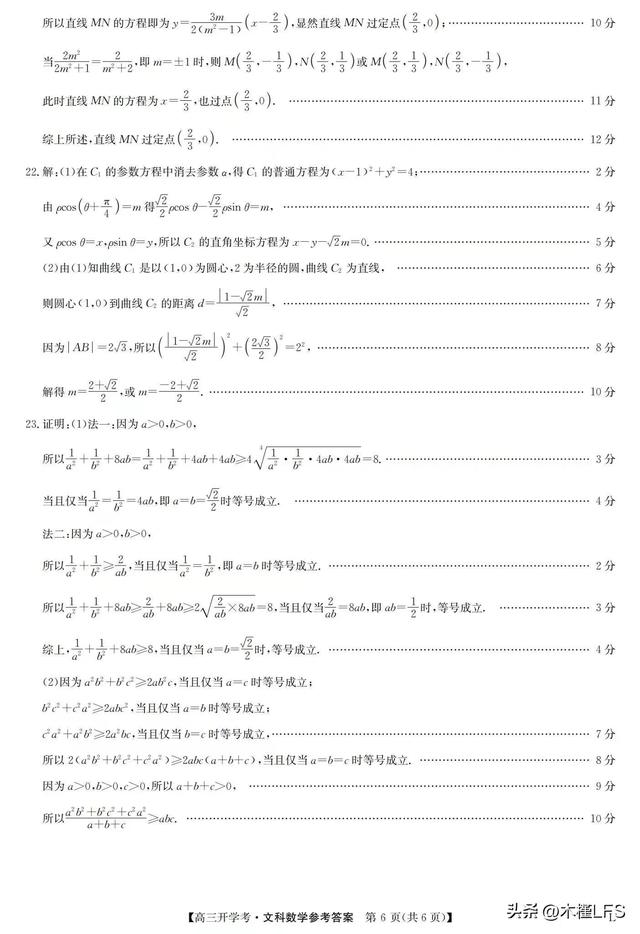 所以直线 MN 的方程即为 y=3m/2(m²-1)(x-2/3),显然直线 MN 过定点(2/3,0); 10 分
当2m²/2m²+1=2/m²+2,即 m=±1 时,则 M(2/3,-1/3),N(2/3,1/3)或 M(2/3,1/3),N(2/3,-1/3),
此时直线 MN 的方程为 x=2/3,也过点(2/3,0). 11 分
综上所述,直线 MN 过定点(2/3,0). 12 分
22.解:(1)在 C₁ 的参数方程中消去参数 α,得 C₁ 的普通方程为(x-1)²+y²=4; 2 分
由 ρcos(θ+π/4)=m 得√2/2ρcos θ-√2/2ρsin θ=m, 4 分
又 ρcos θ=x,ρsin θ=y,所以 C₂ 的直角坐标方程为 x-y-√2m=0. 5 分
(2)由(1)知曲线 C₁ 是以(1,0)为圆心,2 为半径的圆,曲线 C₂ 为直线, 6 分
则圆心(1,0)到曲线 C₂ 的距离 d=|1-√2m|/√2, 7 分
因为|AB|=2√3,所以(|1-√2m|/√2)²+(2√3/2)²=2², 8 分
解得 m=2+√2/2,或 m=-2+√2/2. 10 分
23.证明:(1)法一:因为 a>0,b>0,
所以1/a²+1/b²+8ab=1/a²+1/b²+4ab+4ab≥4⁴√1/a²·1/b²·4ab·4ab=8. 3 分
当且仅当1/a²=1/b²=4ab,即 a=b=√2/2时等号成立. 4 分
法二:因为 a>0,b>0,
所以1/a²+1/b²≥2/ab,当且仅当1/a²=1/b²,即 a=b 时等号成立. 2 分
所以1/a²+1/b²+8ab≥2/ab+8ab≥2√2/ab×8ab=8,当且仅当2/ab=8ab,即 ab=1/2时,等号成立. 3 分
综上,1/a²+1/b²+8ab≥8,当且仅当 a=b=√2/2时,等号成立. 4 分
(2)因为 a²b²+b²c²≥2ab²c,当且仅当 a=c 时等号成立;
b²c²+c²a²≥2abc²,当且仅当 a=b 时等号成立;
c²a²+a²b²≥2a²bc,当且仅当 b=c 时等号成立, 7 分
所以 2(a²b²+b²c²+c²a²)≥2abc(a+b+c),当且仅当 a=b=c 时等号成立. 8 分
因为 a>0,b>0,c>0,所以 a+b+c>0, 9 分
所以a²b²+b²c²+c²a²/a+b+c≥abc. 10 分
【高三开学考·文科数学参考答案 第 6 页(共 6 页)】
头条 @木槿LFS